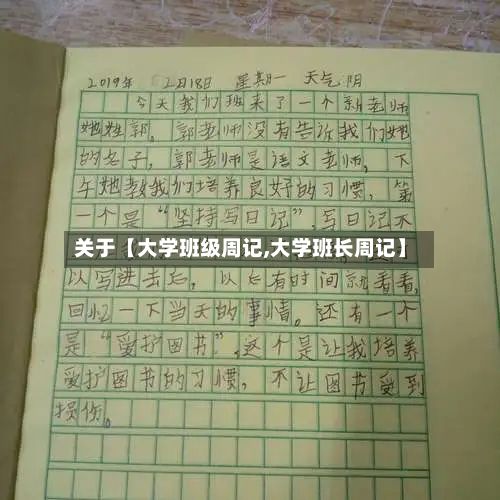 2019年 2月18日 星期一 天气:阴
今天我们班来了一个新老师
她姓郭。郭老师没有告诉我们她
的名子,郭老师是语文老师,下
午她教我们培养良好的习惯,第
一个是“坚持写日记”,写日记不
关于【大学班级周记,大学班长周记】
以写进去后,以后有时间就看看,
回忆一下当天的事情。还有一个
是“爱护图书”,这个是让我培养
爱护图书的习惯,不让图书受到
损伤。